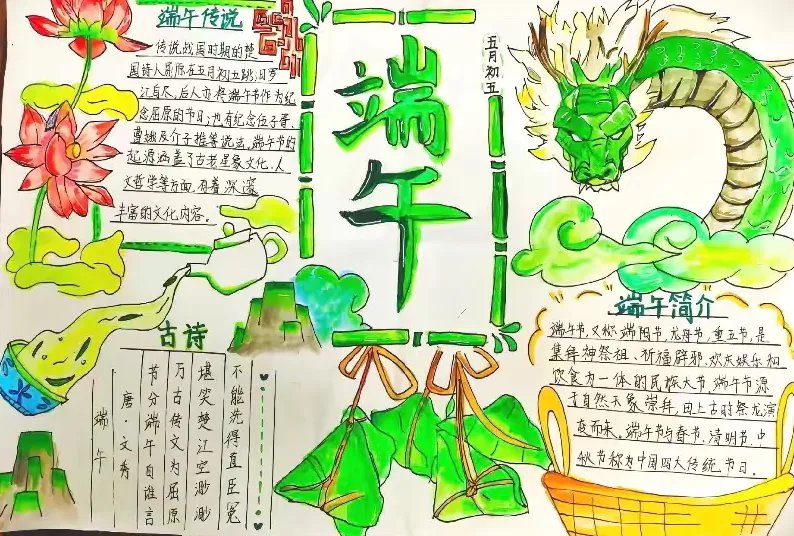 端午传说
传说战国时期的楚
国诗人屈原在五月初五跳汨罗
江自尽,后人亦将端午节作为纪
念屈原的节日;也有纪念伍子胥、
曹娥及介子推等说法。端午节的
起源涵盖了古老星象文化、人
文哲学等方面,有着深邃
丰富的文化内容。
端午
五月初五
古诗
端午
唐·文秀
节分端午自谁言
万古传文为屈原
堪笑楚江空渺渺
不能洗得直臣冤
端午简介
端午节,又称端阳节,龙舟节,重五节,是
集拜神祭祖、祈福辟邪、欢庆娱乐和
饮食为一体的民族大节,端午节源
于自然天象崇拜,由上古时祭龙演
变而来。端午节与春节、清明节、中
秋节称为中国四大传统节日。